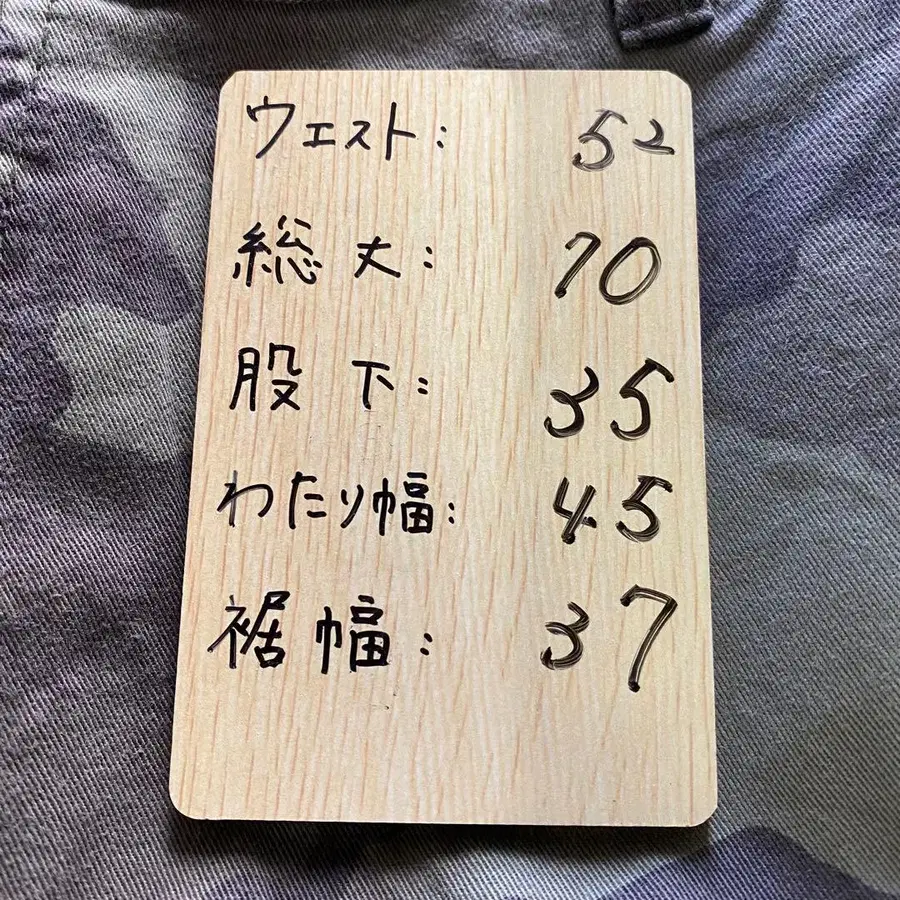 ウエスト: 52
総丈: 70
股下: 35
わたり幅: 45
裾幅: 37